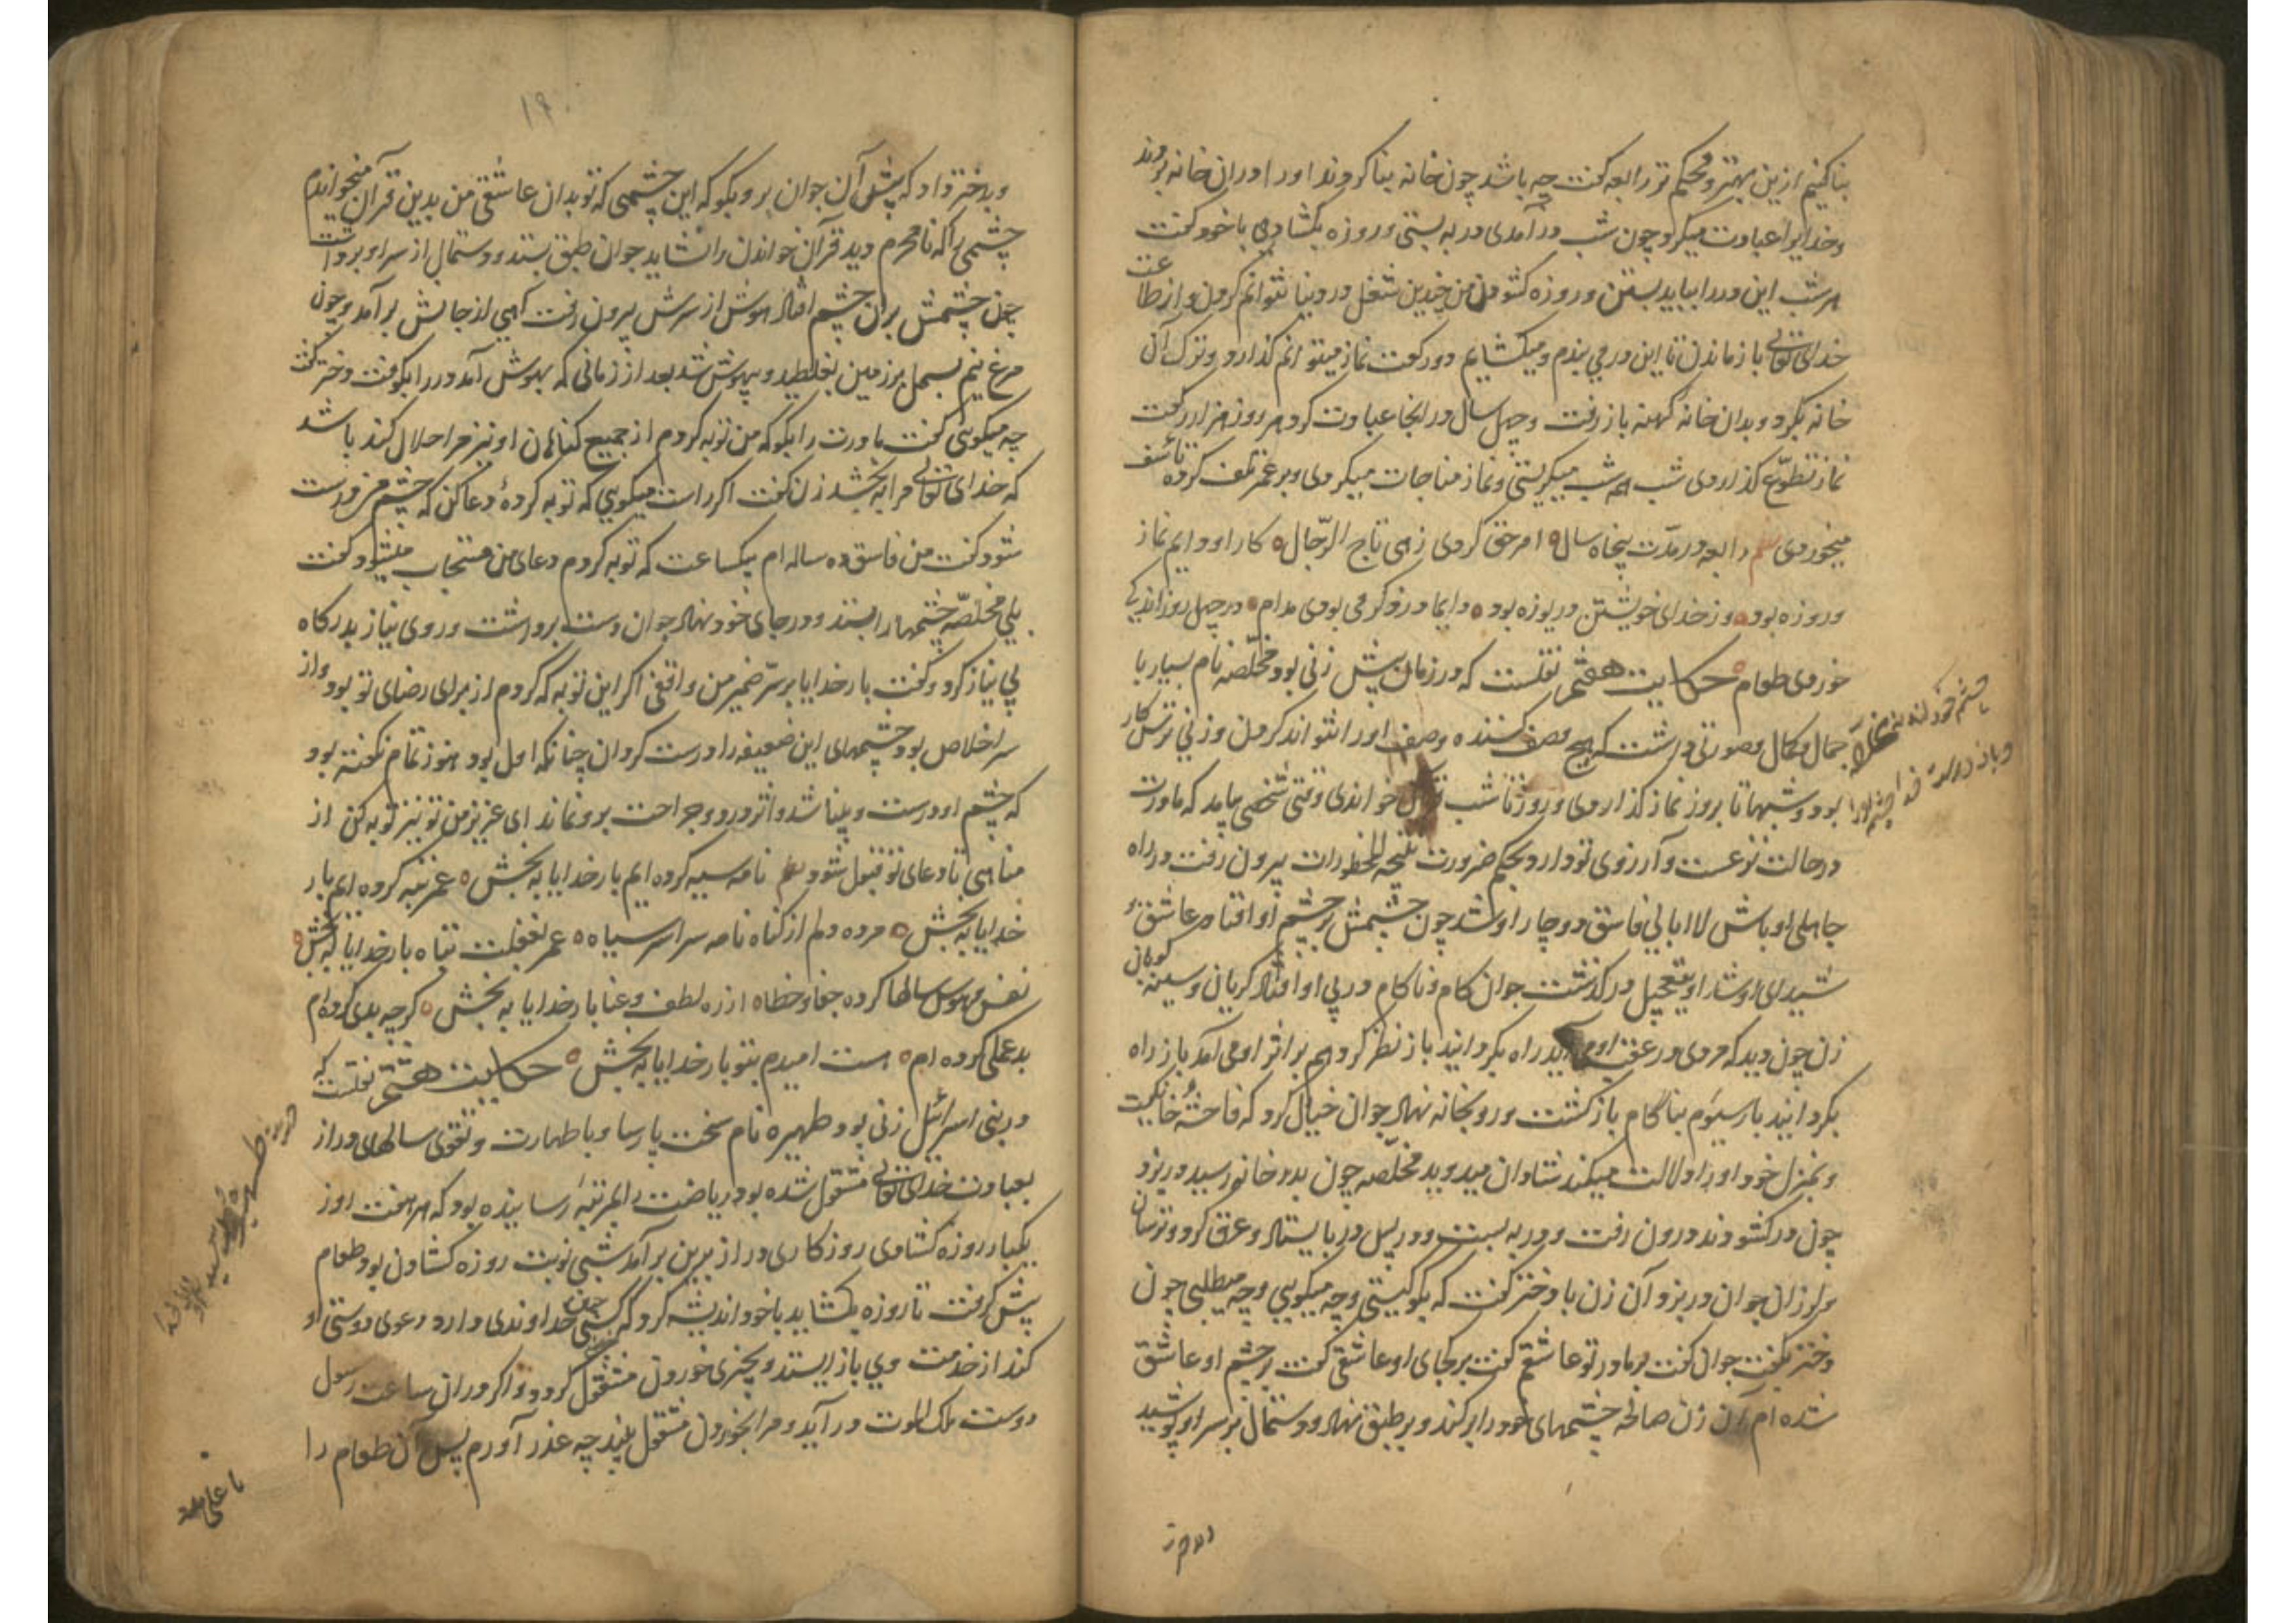 بنا کنیم ازین بهتر و محکم تر رابعه گفت چه باشد چون خانه بنا کردند او را دران خانه بردند
و خدایرا عبادت میکرد چون شب در آمدی در به بستی و روزه بکشادی با خود گفت
هر شب این در را بباید بستن و روزه کشودن من چندین شغل در دنیا نتوانم کردن و از طاعت
خدای تعالی بازماندن تا این در می بندم و میکشایم دو رکعت نماز میتوانم گذارد و ترک آن
خانه بکرد و بدان خانه کهنه باز رفت و چهل سال در انجا عبادت کرد هر روز هزار رکعت
نماز تطوع گذاردی شب همه شب میگریستی و نماز مناجات میکردی و بر عمر تلف کرده تأسف
میخوردی رابعه در مدت پنجاه سال امر حق کردی زهی تاج الرجال کار او دایم نماز
و روزه بود وز خدای خویشتن دریوزه بود دایما در ذکر می بودی مدام در چهل روز اندکی
خوردی طعام حکایت هفتم نقلست که در زمان پیش زنی بود مخلصه نام بسیار با
جمال و کمال و صورتی داشت که هیچ وصف کننده وصف او را نتواند کردن و زنی ترس کار
بود و شبها تا بروز نماز گذاردی و روز تا شب قرآن خواندی وقتی شخصی بیامد که مادرت
در حالت نزعست و آرزوی تو دارد بحکم ضرورت بیرون رفت در راه
جاهلی اوباش لاابالی فاسق دوچار او شد چون چشمش بر چشم او افتاد عاشق و
شیدای او شد او بتعجیل در گذشت جوان کام و ناکام در پی او افتاد گریان و سینه کوبان
زن چون دید که مردی در عقب او می آید راه بگردانید باز نظر کرد هم بر اثر او می آمد باز راه
بگردانید بار سیوم بناکام باز گشت و رو بخانه نهاد جوان خیال کرد که فاحشه خانگیست
و بمنزل خود او را دلالت میکند شادان میدوید مخلصه چون بدر خانه رسید در بزد
چون در کشودند درون رفت و در به بست و در پس در بایستاد و عرق کرد و ترسان
و لرزان جوان در بزد آن زن با دختر گفت که بگو کیستی و چه میگویی و چه میطلبی چون
دختر بگفت جوان گفت بر مادر تو عاشقم گفت بر کجای او عاشقی گفت بر چشم او عاشق
شده ام آن زن صالحه چشمهای خود را بر کند و بر طبق نهاد و دستمال بر سر او پوشید
۱۹
و بدختر داد که پیش آن جوان بر و بگو که این چشمی که تو بدان عاشقی من بدین قرآن میخواندم
چشمی را که نامحرم دید قرآن خواندن را نشاید جوان طبق بستد و دستمال از سر او برداشت
چون چشمش بران چشم افتاد هوش از سرش بیرون رفت آهی از جانش بر آمد و چون
مرغ نیم بسمل بر زمین بغلطید و بیهوش شد بعد از زمانی که بهوش آمد در را بکوفت دختر گفت
چه میگویی گفت مادرت را بگو که من توبه کردم از جمیع گناهان او نیز مرا حلال کند باشد
که خدای تعالی مرا به بخشد زن گفت اگر راست میگویی که توبه کردهٔ دعا کن که چشم من درست
شود گفت من فاسق ده ساله ام یکساعت که توبه کردم دعای من مستجاب میشود گفت
بلی مخلصه چشمها را بستد و در جای خود نهاد جوان دست برداشت و روی نیاز بدرگاه
بی نیاز کرد و گفت بار خدایا بر سر ضمیر من واقفی اگر این توبه که کردم از برای رضای تو بود و از
سر اخلاص بود چشمهای این ضعیفه را درست گردان چنانکه اول بود هنوز تمام نگفته بود
که چشم او درست و بینا شد و اثر درد و جراحت برو نماند ای عزیز من تو نیز توبه کن از
مناهی تا دعای تو قبول شود نامه سیه کرده ایم بار خدایا به بخش عمر تبه کرده ایم بار
خدایا به بخش مرده دلم از گناه نامه سراسر سیاه عمر بغفلت تباه بار خدایا به بخش
نفس و هوس سالها کرده جفا و خطاه از ره لطف و عنا بار خدایا به بخش گرچه بدی کرده ام
بد عملی کرده ام هست امیدم بتو بار خدایا به بخش حکایت هشتم نقلست که
در بنی اسرائیل زنی بود طهیره نام سخت پارسا و با طهارت و تقوی سالهای دراز
بعبادت خدای تعالی مشغول شده بود و ریاضت را بمرتبهٔ رسانیده بود که هر هفت روز
یکبار روزه کشادی روزگاری دراز برین بر آمد شبی نوبت روزه کشادن بود طعام
پیش گرفت تا روزه بکشاید با خود اندیشه کرد که کسی چون خداوندی دارد و دعوی دوستی او
کند از خدمت وی باز ایستد و بچیزی خوردن مشغول گردد و اگر دران ساعت رسول
دوست ملک الموت در آید و مرا بخوردن مشغول بیند چه عذر آورم پس آن طعام را
یا علی مدد